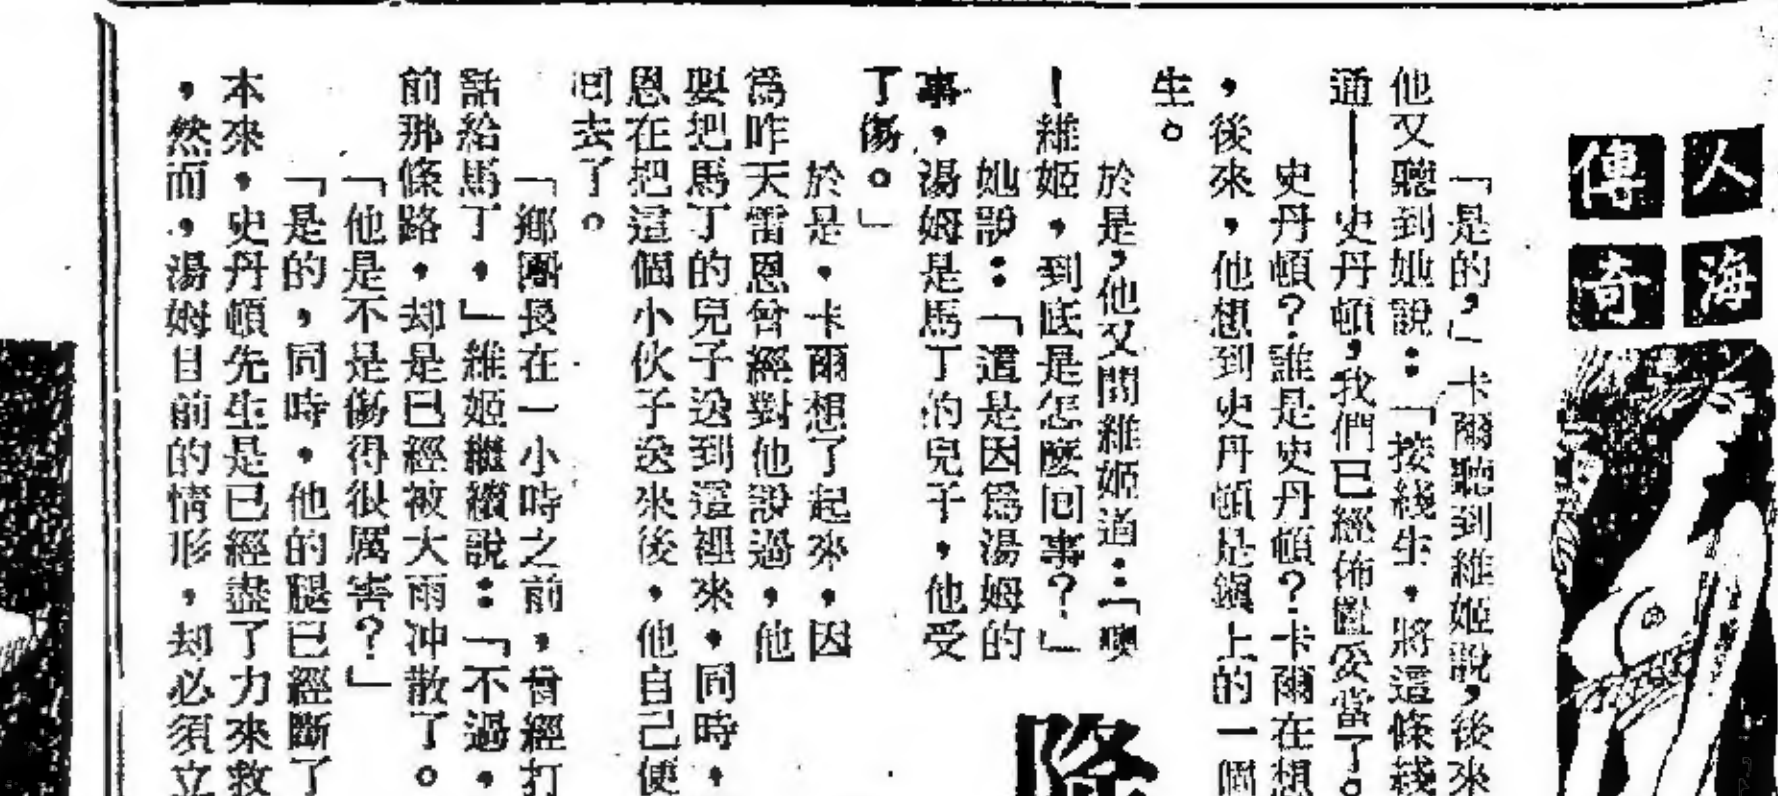 人海
傳奇
「是的，」卡爾聽到維姬說，後來
他又聽到她說：「接綫生，將這條綫
通——史丹頓，我們已經佈置妥當了。
史丹頓？誰是史丹頓？卡爾在想
，後來，他想到史丹頓是鎮上的一個
生。
於是，他又問維姬道：「噢
！維姬，到底是怎麼回事？」
她說：「這是因爲湯姆的
事，湯姆是馬丁的兒子，他受
了傷。」
於是，卡爾想了起來，因
爲昨天雷恩曾經對他說過，他
要把馬丁的兒子送到這裡來，同時，
恩在把這個小伙子送來後，他自己便
回去了。
「鄉團長在一小時之前，曾經打
話給馬丁，」維姬繼續說：「不過，
前那條路，却是已經被大雨冲散了。
「他是不是傷得很厲害？」
「是的，同時，他的腿已經斷了
本來，史丹頓先生是已經盡了力來救
，然而，湯姆目前的情形，却必須立
降